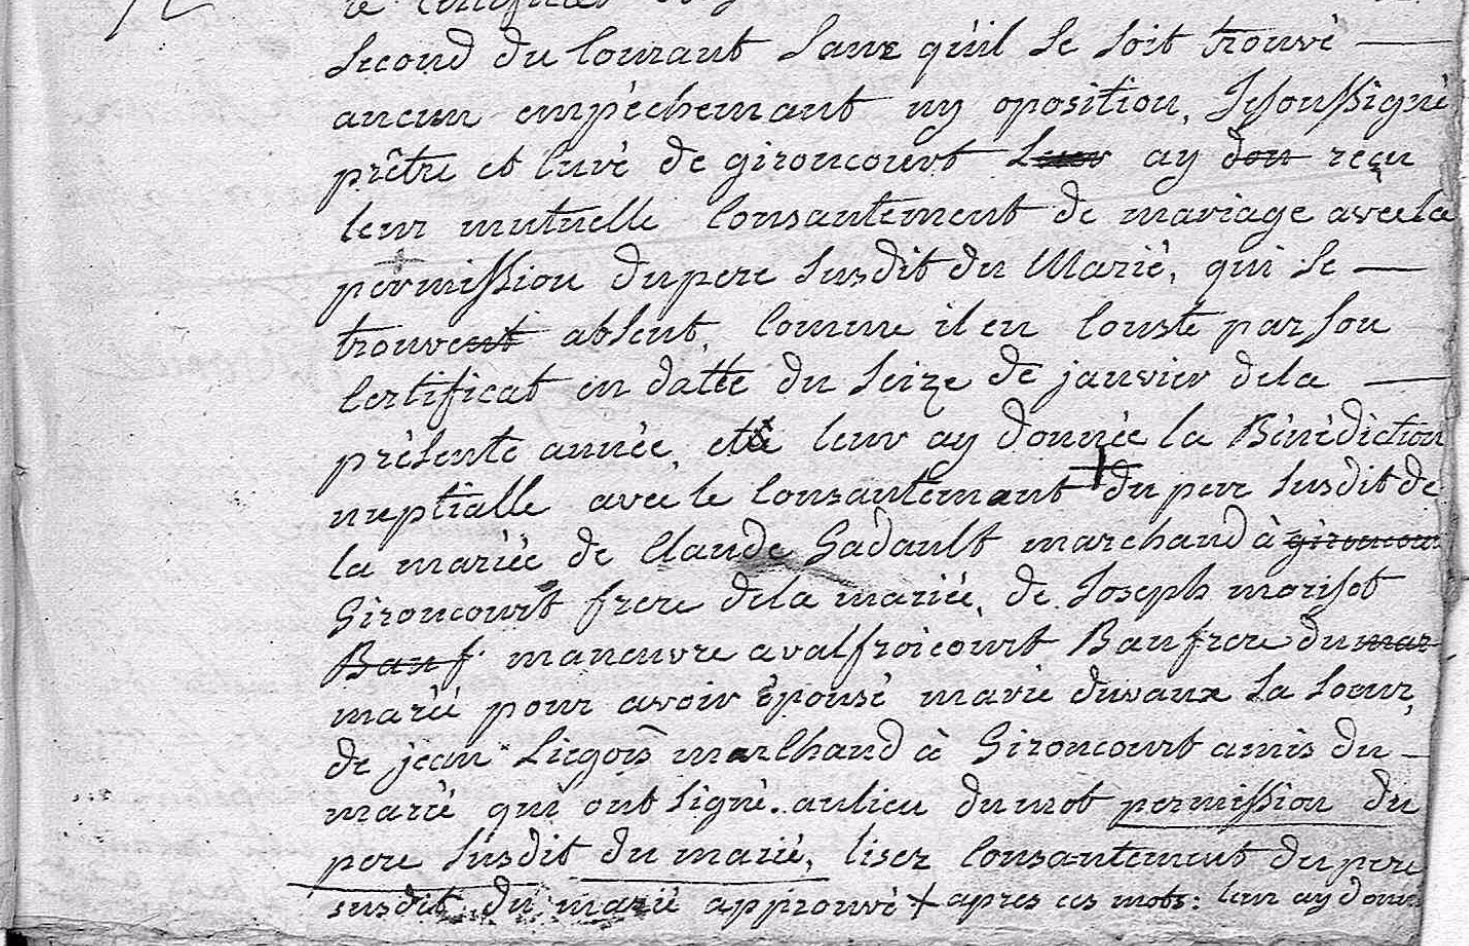 second du Courant sanz qu'il se soit trouvé
aucun empéchemant ny oposition, Jesoussigné
prêtre et Curé de gironcourt ay recu
leur mutuelle Consantement de mariage avec la
permission du pere susdit du Marié, qui se
trouvent absent, Comme il en Conste par son
Certificat en datte du seize de janvier de la
présente année, leur ay donnée la Bénédiction
nuptialle avec le Consantemant + du pere susdit de
la mariée de Claude Gadault marchand à gironcour
Gironcourt frere de la mariée, de Joseph morisot
Bauf. maneuvre a valfroicourt Baufrere du mar
marié pour avoir épousé marie duvaux sa soeur,
de jean Liegois marchand à Gironcourt amis du
marié qui ont signé. aulieu du mot permission du
pere susdit du marié, lisez Consantement du pere
susdit du marié approuvé + apres ces mots: leur ay donn